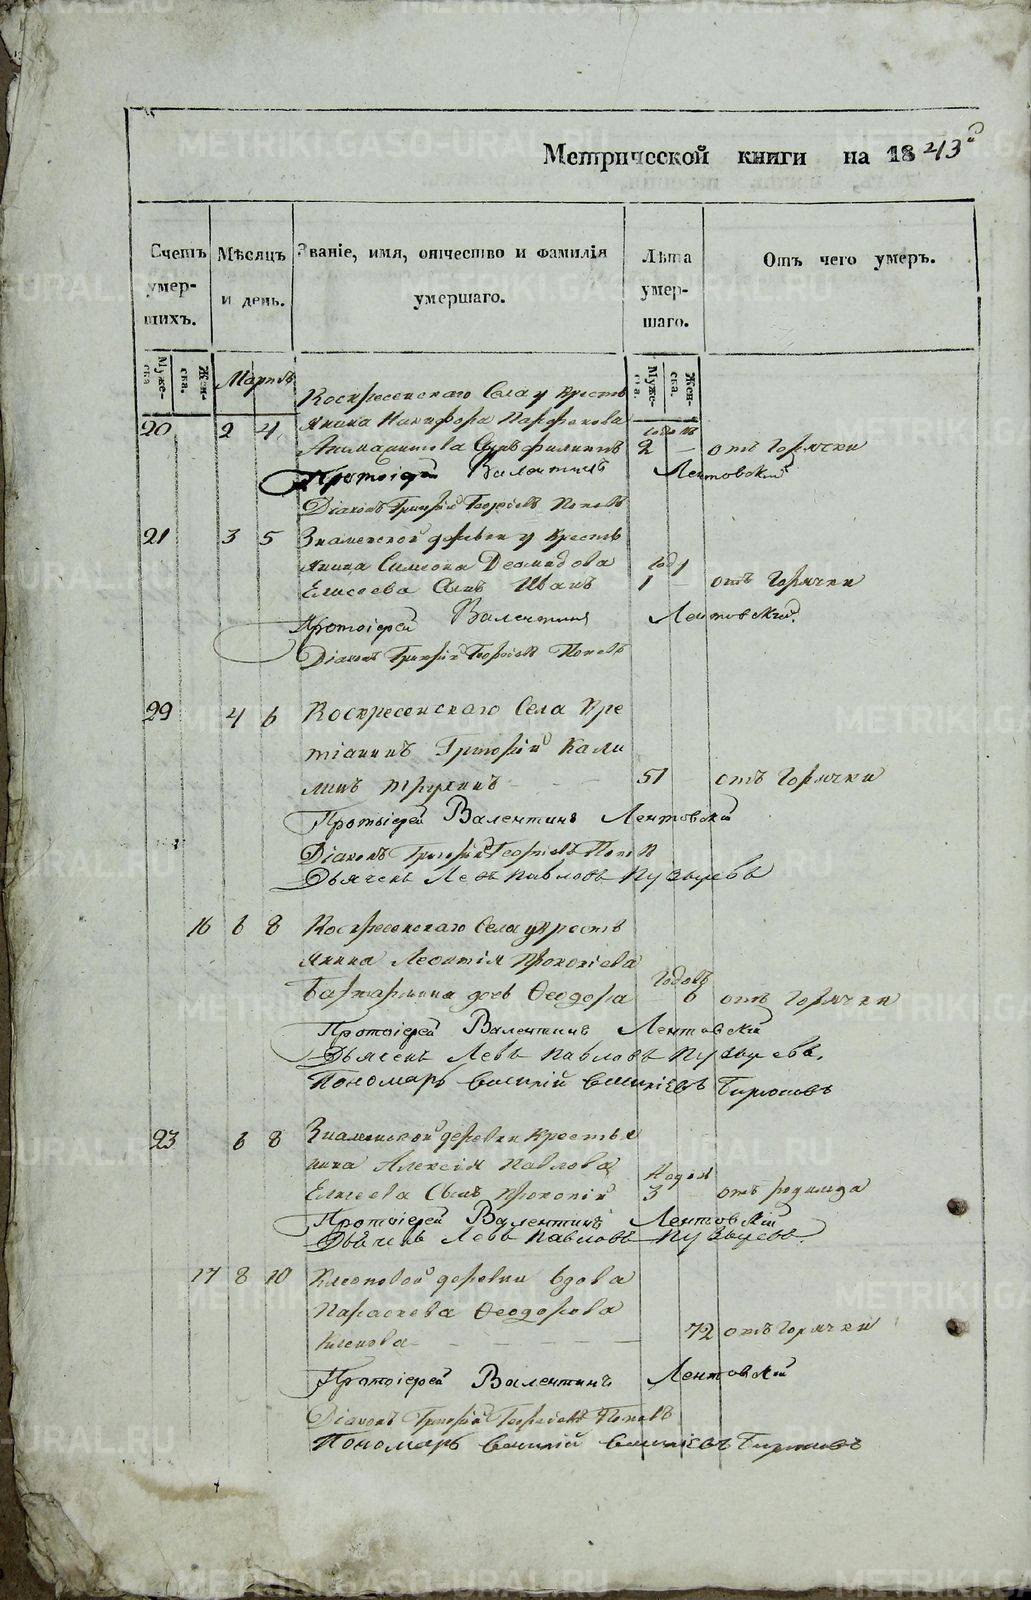 Метрической книги на 1843й
Счетъ умер-шихъ.
Мѣсяцъ и день.
Званіе, имя, отчество и фамилія умершаго.
Лѣта умер-шаго.
Отъ чего умеръ.
Муже-ска.
Жен-ска.
Муже-ска.
Жен-ска.
Мартъ
Воскресенскаго Села у Кресть
20 2 4 янина Никифора Парфенова годовъ
Сынъ Филиппъ 2 — отъ Горячки
Протоіерей Валентинъ Лентовскій
Діаконъ Григорій Георгіевъ Поповъ
21 3 5 Знаменской деревни у кресть
янина Симеона Деомидова годъ
Елисеева Сынъ Иванъ 1 — отъ Горячки
Протоіерей Валентинъ Лентовскій
Діаконъ Григорій Георгіевъ Поповъ
29 4 6 Воскресенскаго Села Кре
тіанинъ Григорій Кали
нинъ 51 отъ Горячки
Протоіерей Валентинъ Лентовскій
Діаконъ Григорій Георгіевъ Поповъ
Дьячекъ Левъ Павловъ Пузыревъ
16 6 8 Воскресенскаго Села у кресть
янина Леонтія Прокопіева годовъ
дочь Ѳеодора — 6 отъ Горячки
Протоіерей Валентинъ Лентовскій
Дьячекъ Левъ Павловъ Пузыревъ.
Пономарь Василій Василіевъ Бирюковъ
23 6 8 Знаменской деревни крестья
нина Алексія Павлова
Елисеева Сынъ Прокопій 3 — отъ родимца
Протоіерей Валентинъ Лентовскій
Дьячекъ Левъ Павловъ Пузыревъ
17 8 10 деревни вдова
Параскева Ѳеодорова
72 отъ Горячки
Протоіерей Валентинъ Лентовскій
Діаконъ Григорій Георгіевъ Поповъ
Пономарь Василій Василіевъ Бирюковъ
METRIKI.GASO-URAL.RU